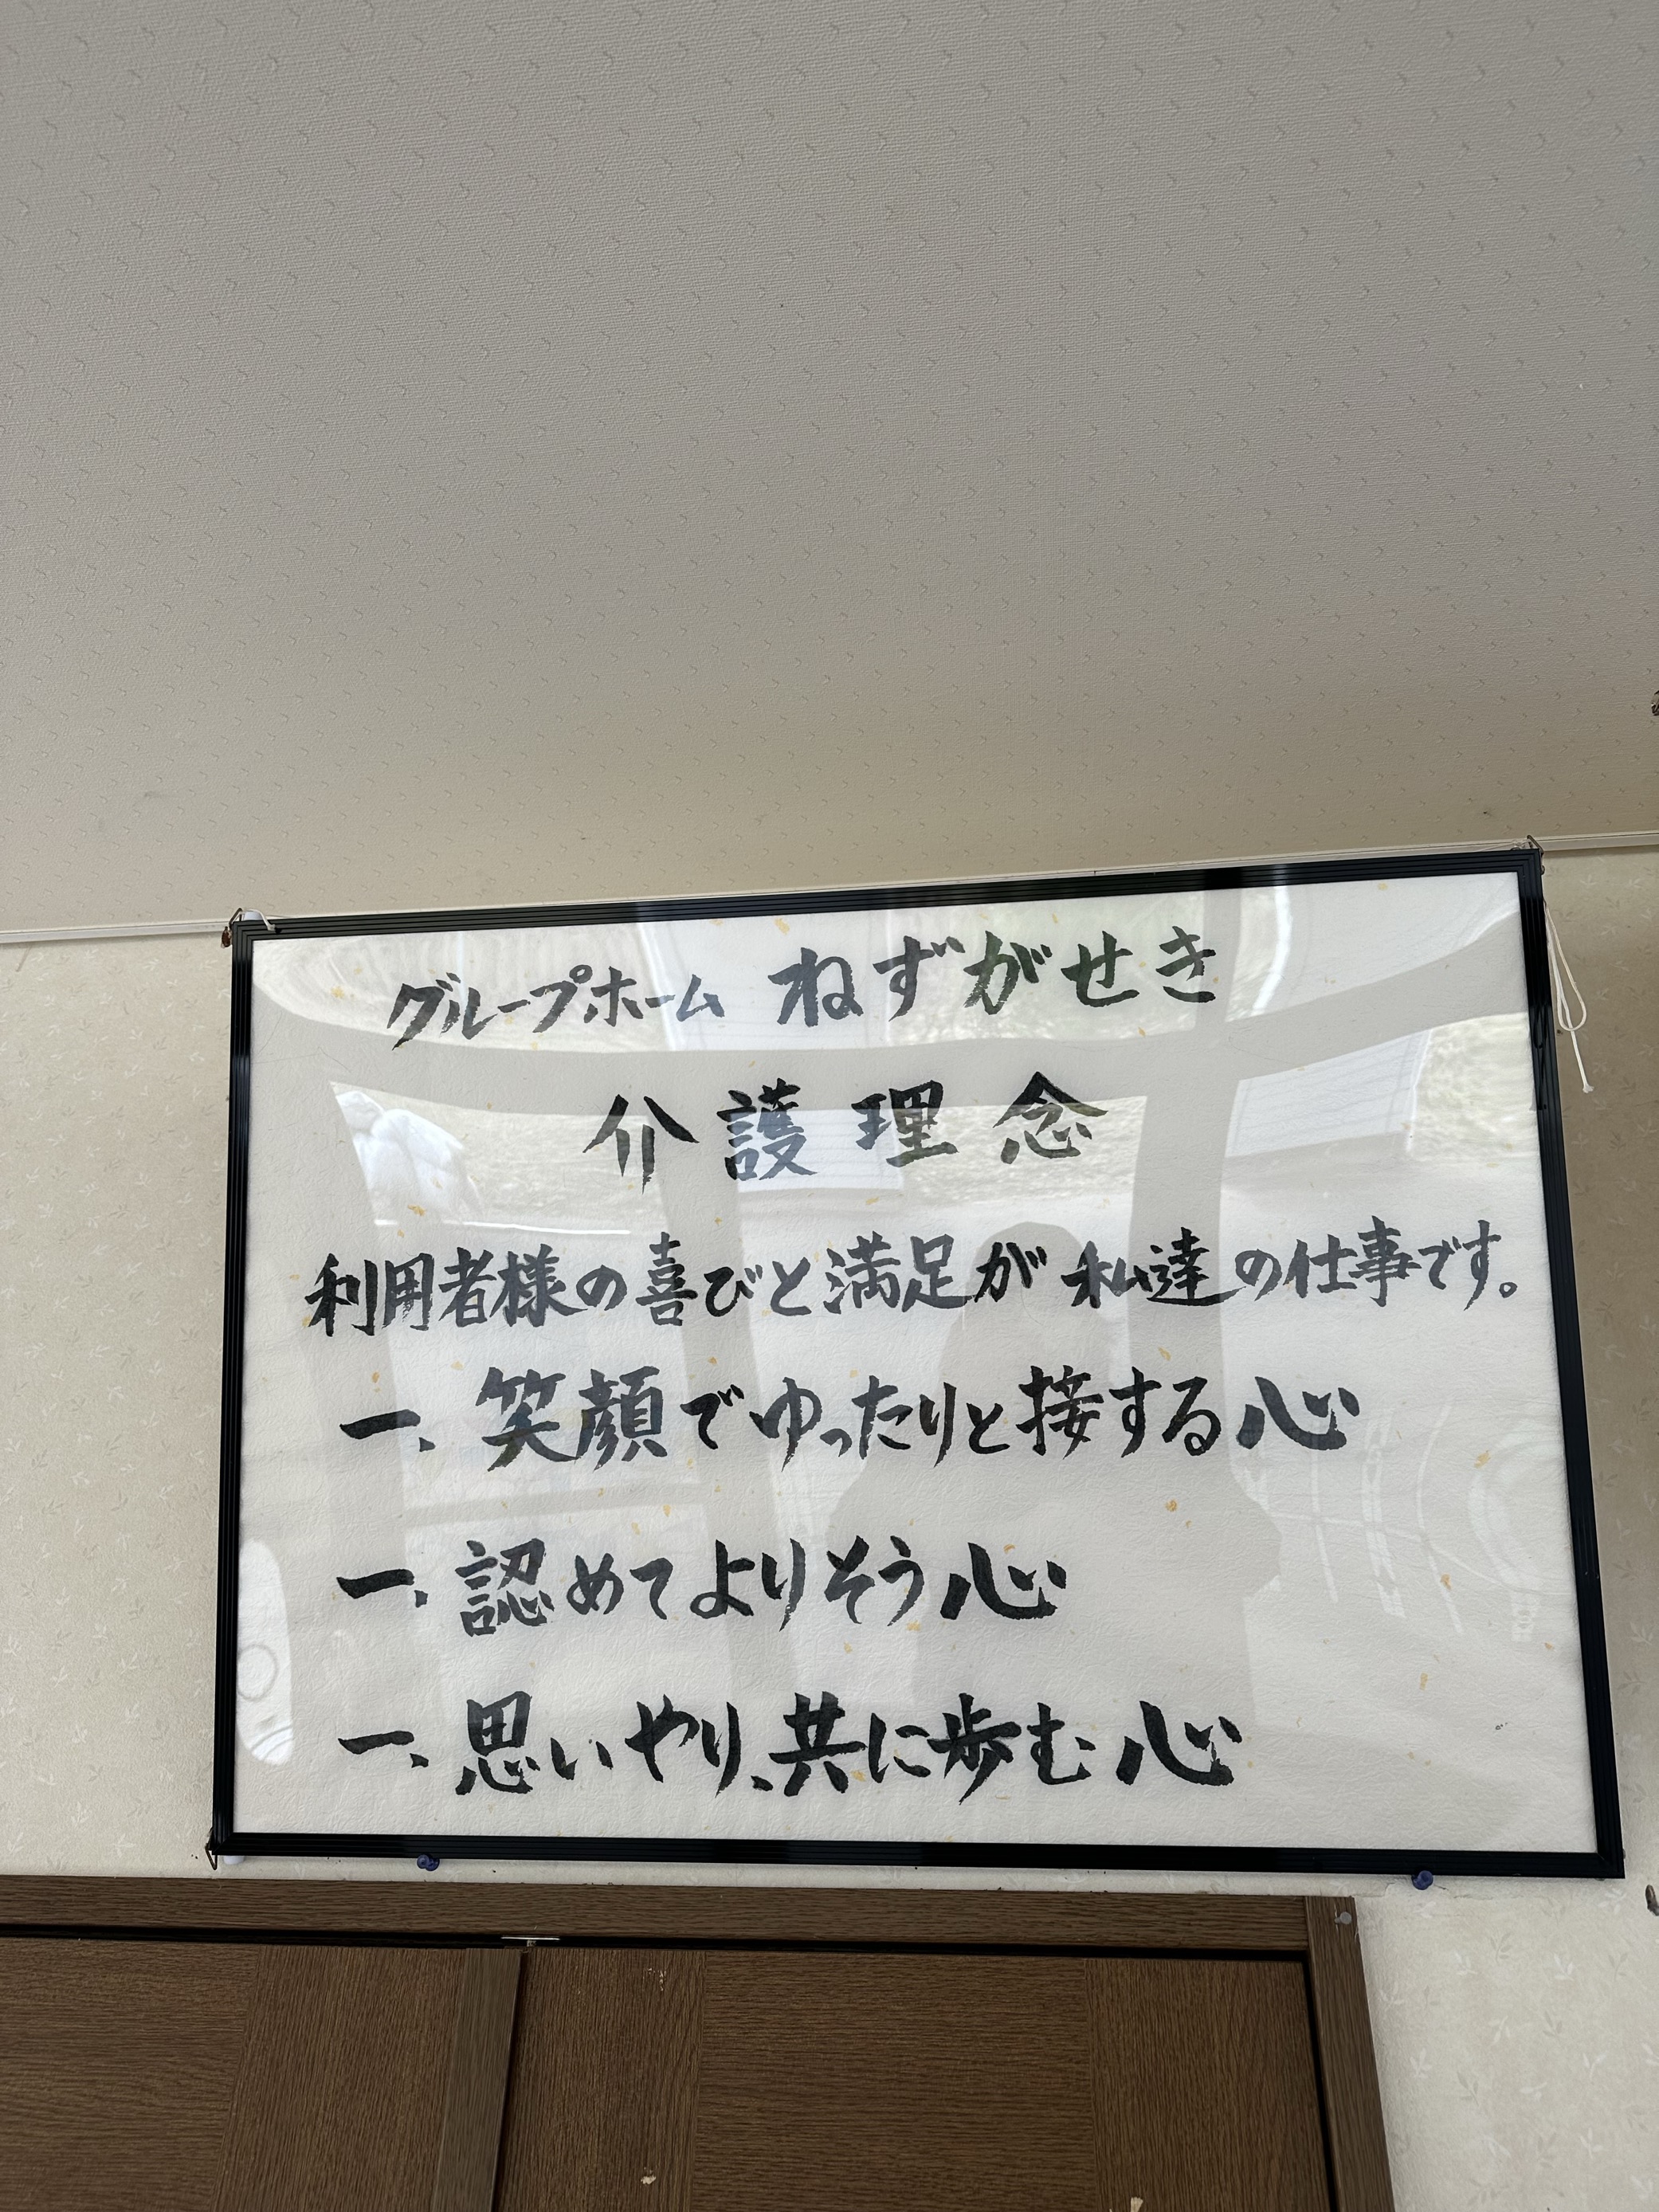 グループホーム ねずがせき
介護理念
利用者様の喜びと満足が私達の仕事です。
一、笑顔でゆったりと接する心
一、認めてよりそう心
一、思いやり、共に歩む心